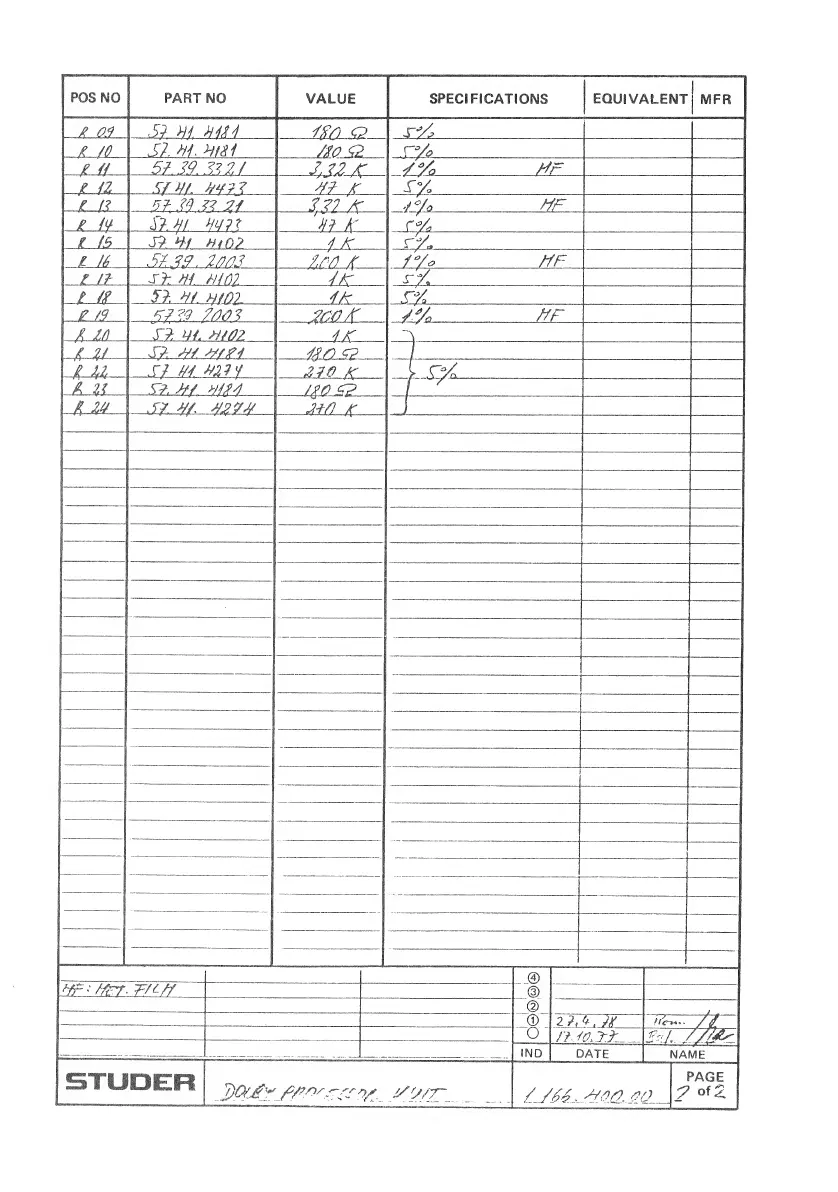 POS NO PART NO VALUE SPECIFICATIONS EQUIVALENT MFR
R 09 57. 41. 4181 180 Ω 5%
R 10 57. 41. 4181 180 Ω 5%
R 11 57 39. 3321 3,32 K 1% MF
R 12 57 41. 4473 47 K 5%
R 13 57 39 33 21 3,32 K 1% MF
R 14 57. 41 4473 47 K 5%
R 15 57 41. 4102 1 K 5%
R 16 57 39. 2003 200 K 1% MF
R 17 57. 41. 4102 1 K 5%
R 18 57. 41. 4102 1 K 5%
R 19 57 39 2003 200 K 1% MF
R 20 57. 41. 4102 1 K
R 21 57. 41. 4181 180 Ω
R 22 57 41. 4274 270 K 5%
R 23 57. 41. 4181 180 Ω
R 24 57. 41. 4274 270 K
④
MF : MET. FILM ③
②
① 27. 4. 78
○ 17.10.77
IND DATE NAME
STUDER DOLBY PROCESSOR UNIT 1.166.400.00 PAGE 2 of 2